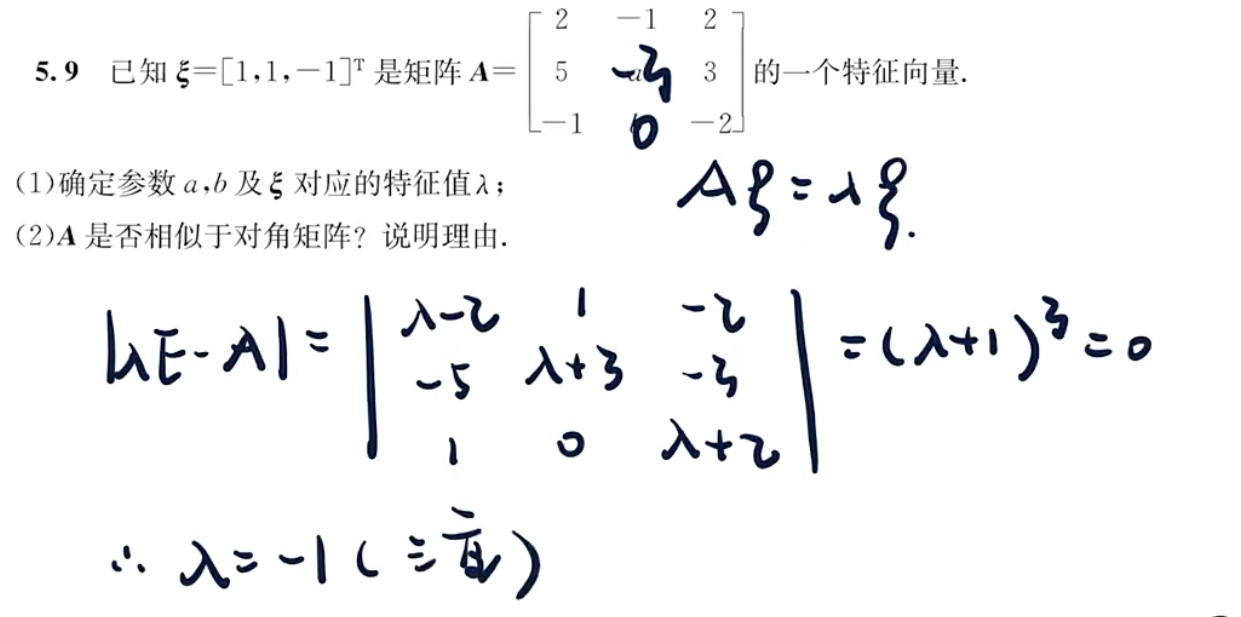 5.9 已知 ξ=[1,1,-1]ᵀ 是矩阵 A= [2 -1 2; 5 -3 3; -1 0 -2] 的一个特征向量.
(1)确定参数 a,b 及 ξ 对应的特征值 λ;
Aξ=λξ.
(2)A 是否相似于对角矩阵? 说明理由.
|λE-A|= |λ-2 1 -2; -5 λ+3 -3; 1 0 λ+2| =(λ+1)³=0
∴ λ=-1(三重)